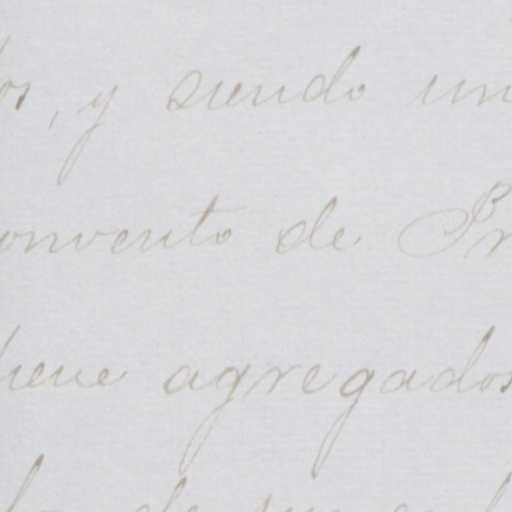 os, y siendo un
onvento de Pr
iene agregados